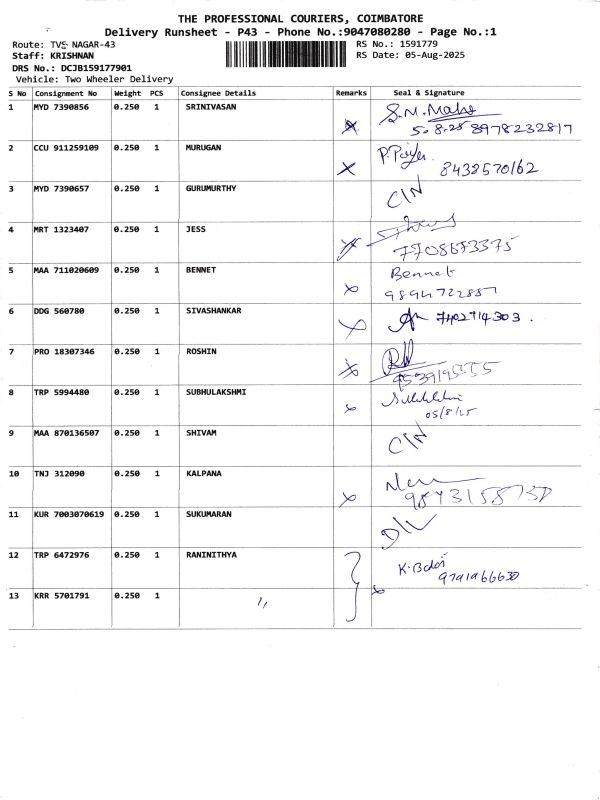 THE PROFESSIONAL COURIERS, COIMBATORE
Delivery Runsheet - P43 - Phone No.:9047080280 - Page No.:1
Route: TVS NAGAR-43 RS No.: 1591779
Staff: KRISHNAN RS Date: 05-Aug-2025
DRS No.: DCJB159177901
Vehicle: Two Wheeler Delivery
S No Consignment No Weight PCS Consignee Details Remarks Seal & Signature
1 MYD 7390856 0.250 1 SRINIVASAN
5.8.25 8978232817
2 CCU 911259109 0.250 1 MURUGAN
8438570162
3 MYD 7390657 0.250 1 GURUMURTHY C/N
4 MRT 1323407 0.250 1 JESS
7708673375
5 MAA 711020609 0.250 1 BENNET Bennet
9894722857
6 DDG 560780 0.250 1 SIVASHANKAR 7402714303.
7 PRO 18307346 0.250 1 ROSHIN
8 TRP 5994480 0.250 1 SUBHULAKSHMI
05/8/25
9 MAA 870136507 0.250 1 SHIVAM C/N
10 TNJ 312090 0.250 1 KALPANA
11 KUR 7003070619 0.250 1 SUKUMARAN D/L
12 TRP 6472976 0.250 1 RANINITHYA
9791966630
13 KRR 5701791 0.250 1 "